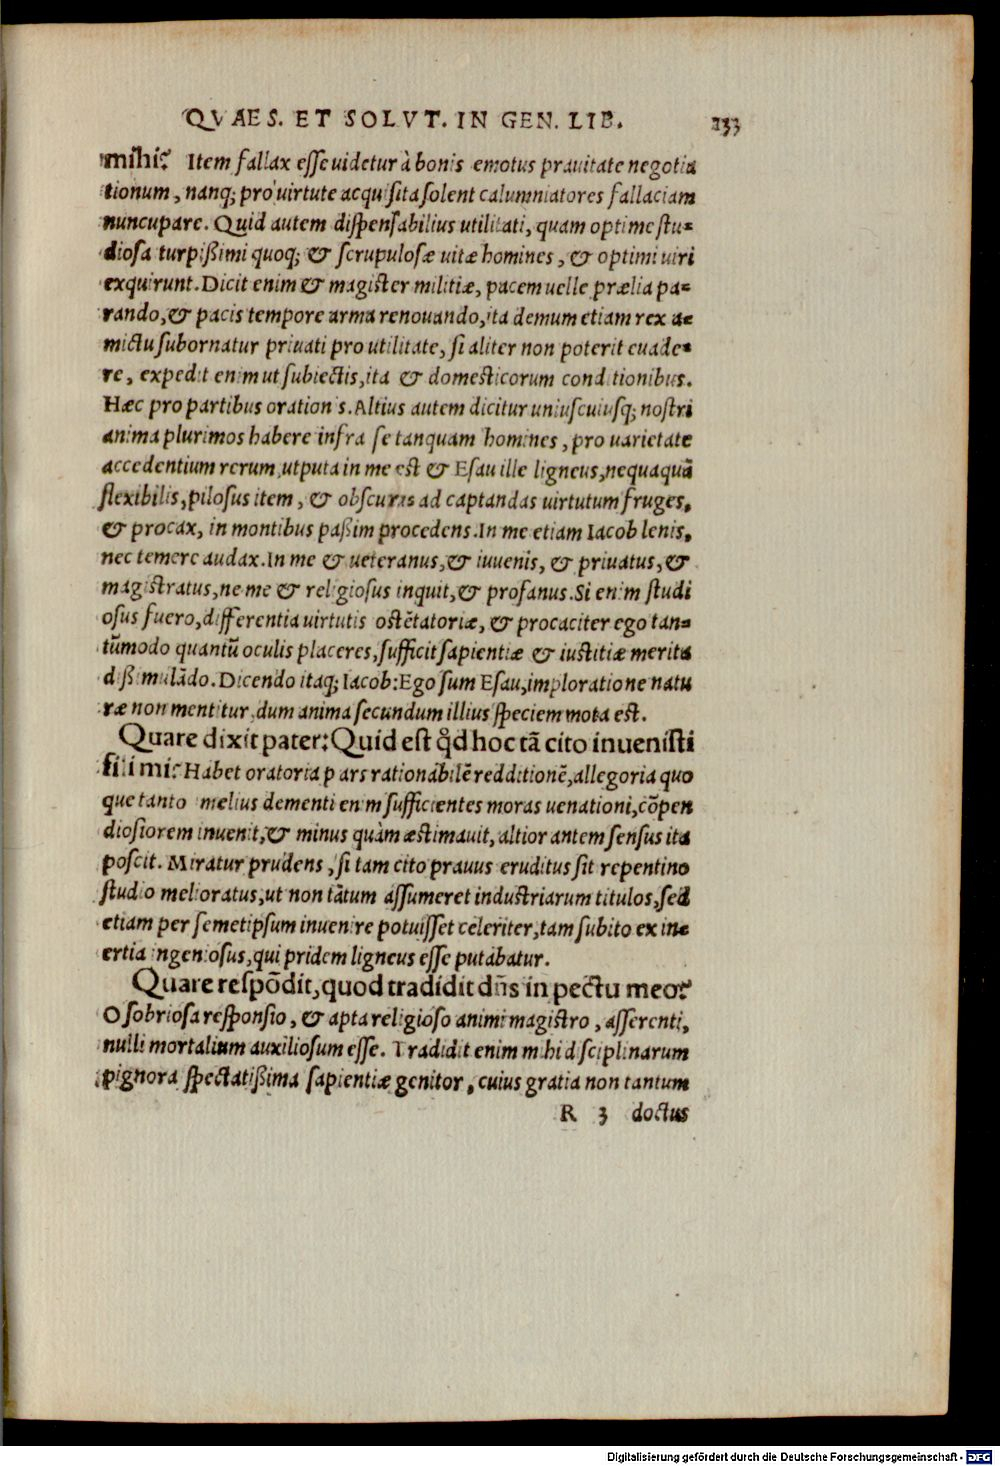 QVAES. ET SOLVT. IN GEN. LIB. 133
mihi? Item fallax esse uidetur à bonis emotus prauitate negotia
tionum, nanq; pro uirtute acquisita solent calumniatores fallaciam
nuncupare. Quid autem dispensabilius utilitati, quam optime stu-
diosa turpißimi quoq; & scrupulosæ uitæ homines, & optimi uiri
exquirunt. Dicit enim & magister militiæ, pacem uelle prælia pa-
rando, & pacis tempore arma renouando, ita demum etiam rex a-
mictu subornatur priuati pro utilitate, si aliter non poterit euade-
re, expedit enim ut subiectis, ita & domesticorum conditionibus.
Hæc pro partibus orationis. Altius autem dicitur uniuscuiusq; nostri
anima plurimos habere infra se tanquam homines, pro uarietate
accedentium rerum, utputa in me est & Esau ille ligneus, nequaquã
flexibilis, pilosus item, & obscurus ad captandas uirtutum fruges,
& procax, in montibus paßim procedens. In me etiam Iacob lenis,
nec temere audax. In me & ueteranus, & iuuenis, & priuatus, &
magistratus, ne me & religiosus inquit, & profanus. Si enim studi
osus fuero, differentia uirtutis ostẽtatoriæ, & procaciter ego tan-
tũmodo quantũ oculis placeres, sufficit sapientiæ & iustitiæ merita
dißimulãdo. Dicendo itaq; Iacob: Ego sum Esau, imploratione natu
ræ non mentitur, dum anima secundum illius speciem mota est.
Quare dixit pater: Quid est qđ hoc tã cito inuenisti
fili mi? Habet oratoria pars rationabilẽ redditionẽ, allegoria quo
que tanto melius dementi enim sufficientes moras uenationi, cõpen
diosiorem inuenit, & minus quàm æstimauit, altior antem sensus ita
poscit. Miratur prudens, si tam cito prauus eruditus sit repentino
studio melioratus, ut non tãtum assumeret industriarum titulos, sed
etiam per semetipsum inuenire potuisset celeriter, tam subito ex in-
ertia ingeniosus, qui pridem ligneus esse putabatur.
Quare respõdit, quod tradidit dñs in pectu meo?
O sobriosa responsio, & apta religioso animi magistro, asserenti,
nulli mortalium auxiliosum esse. Tradidit enim mihi disciplinarum
pignora spectatißima sapientiæ genitor, cuius gratia non tantum
R 3 doctus
Digitalisierung gefördert durch die Deutsche Forschungsgemeinschaft - DFG